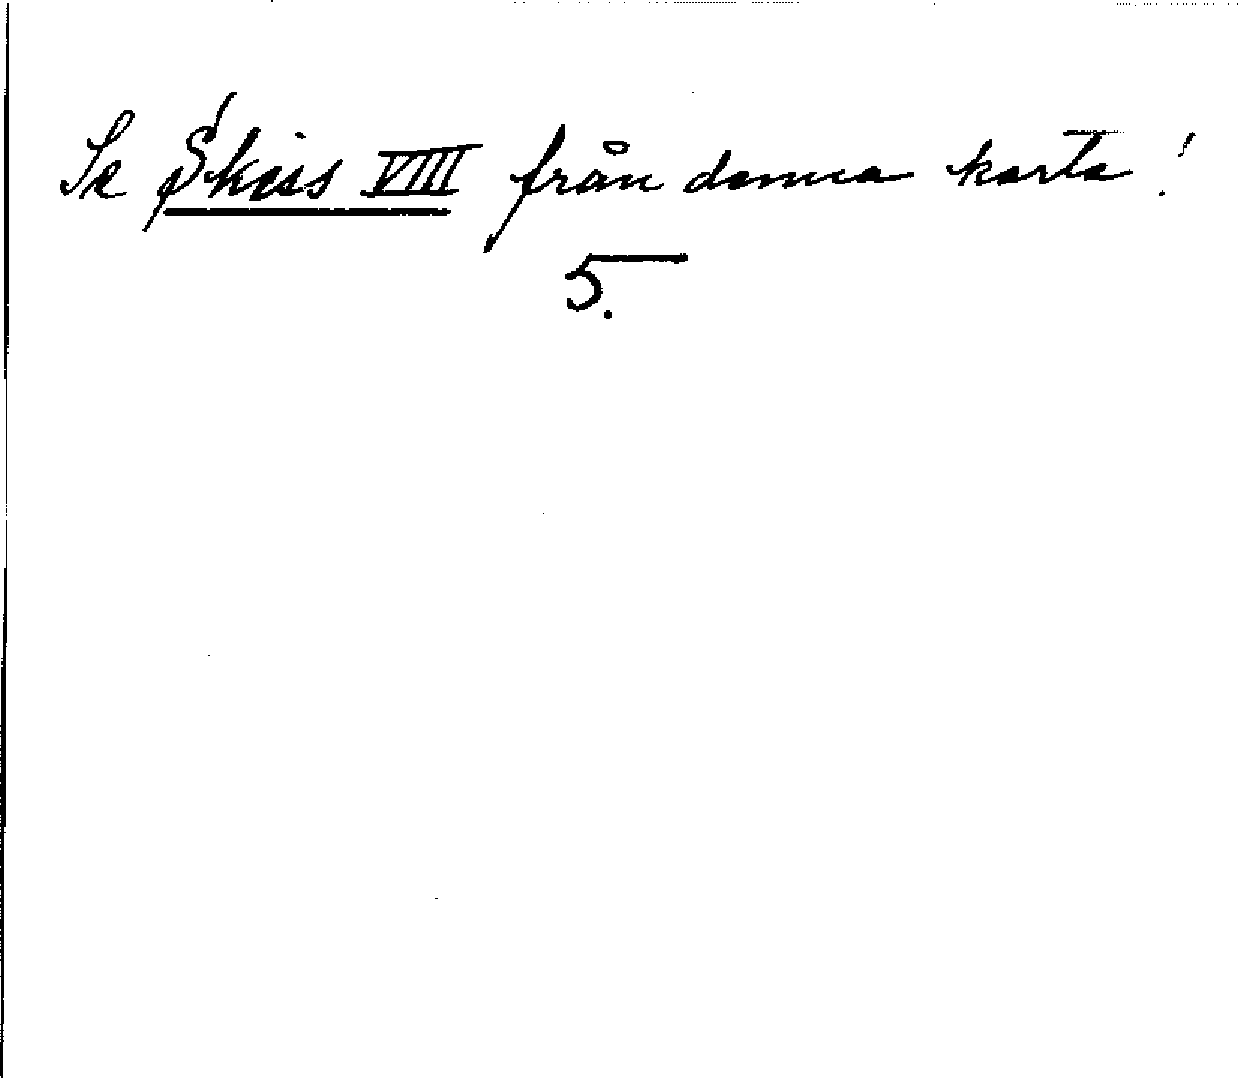 Se Skiss VIII från denna karta!
5.